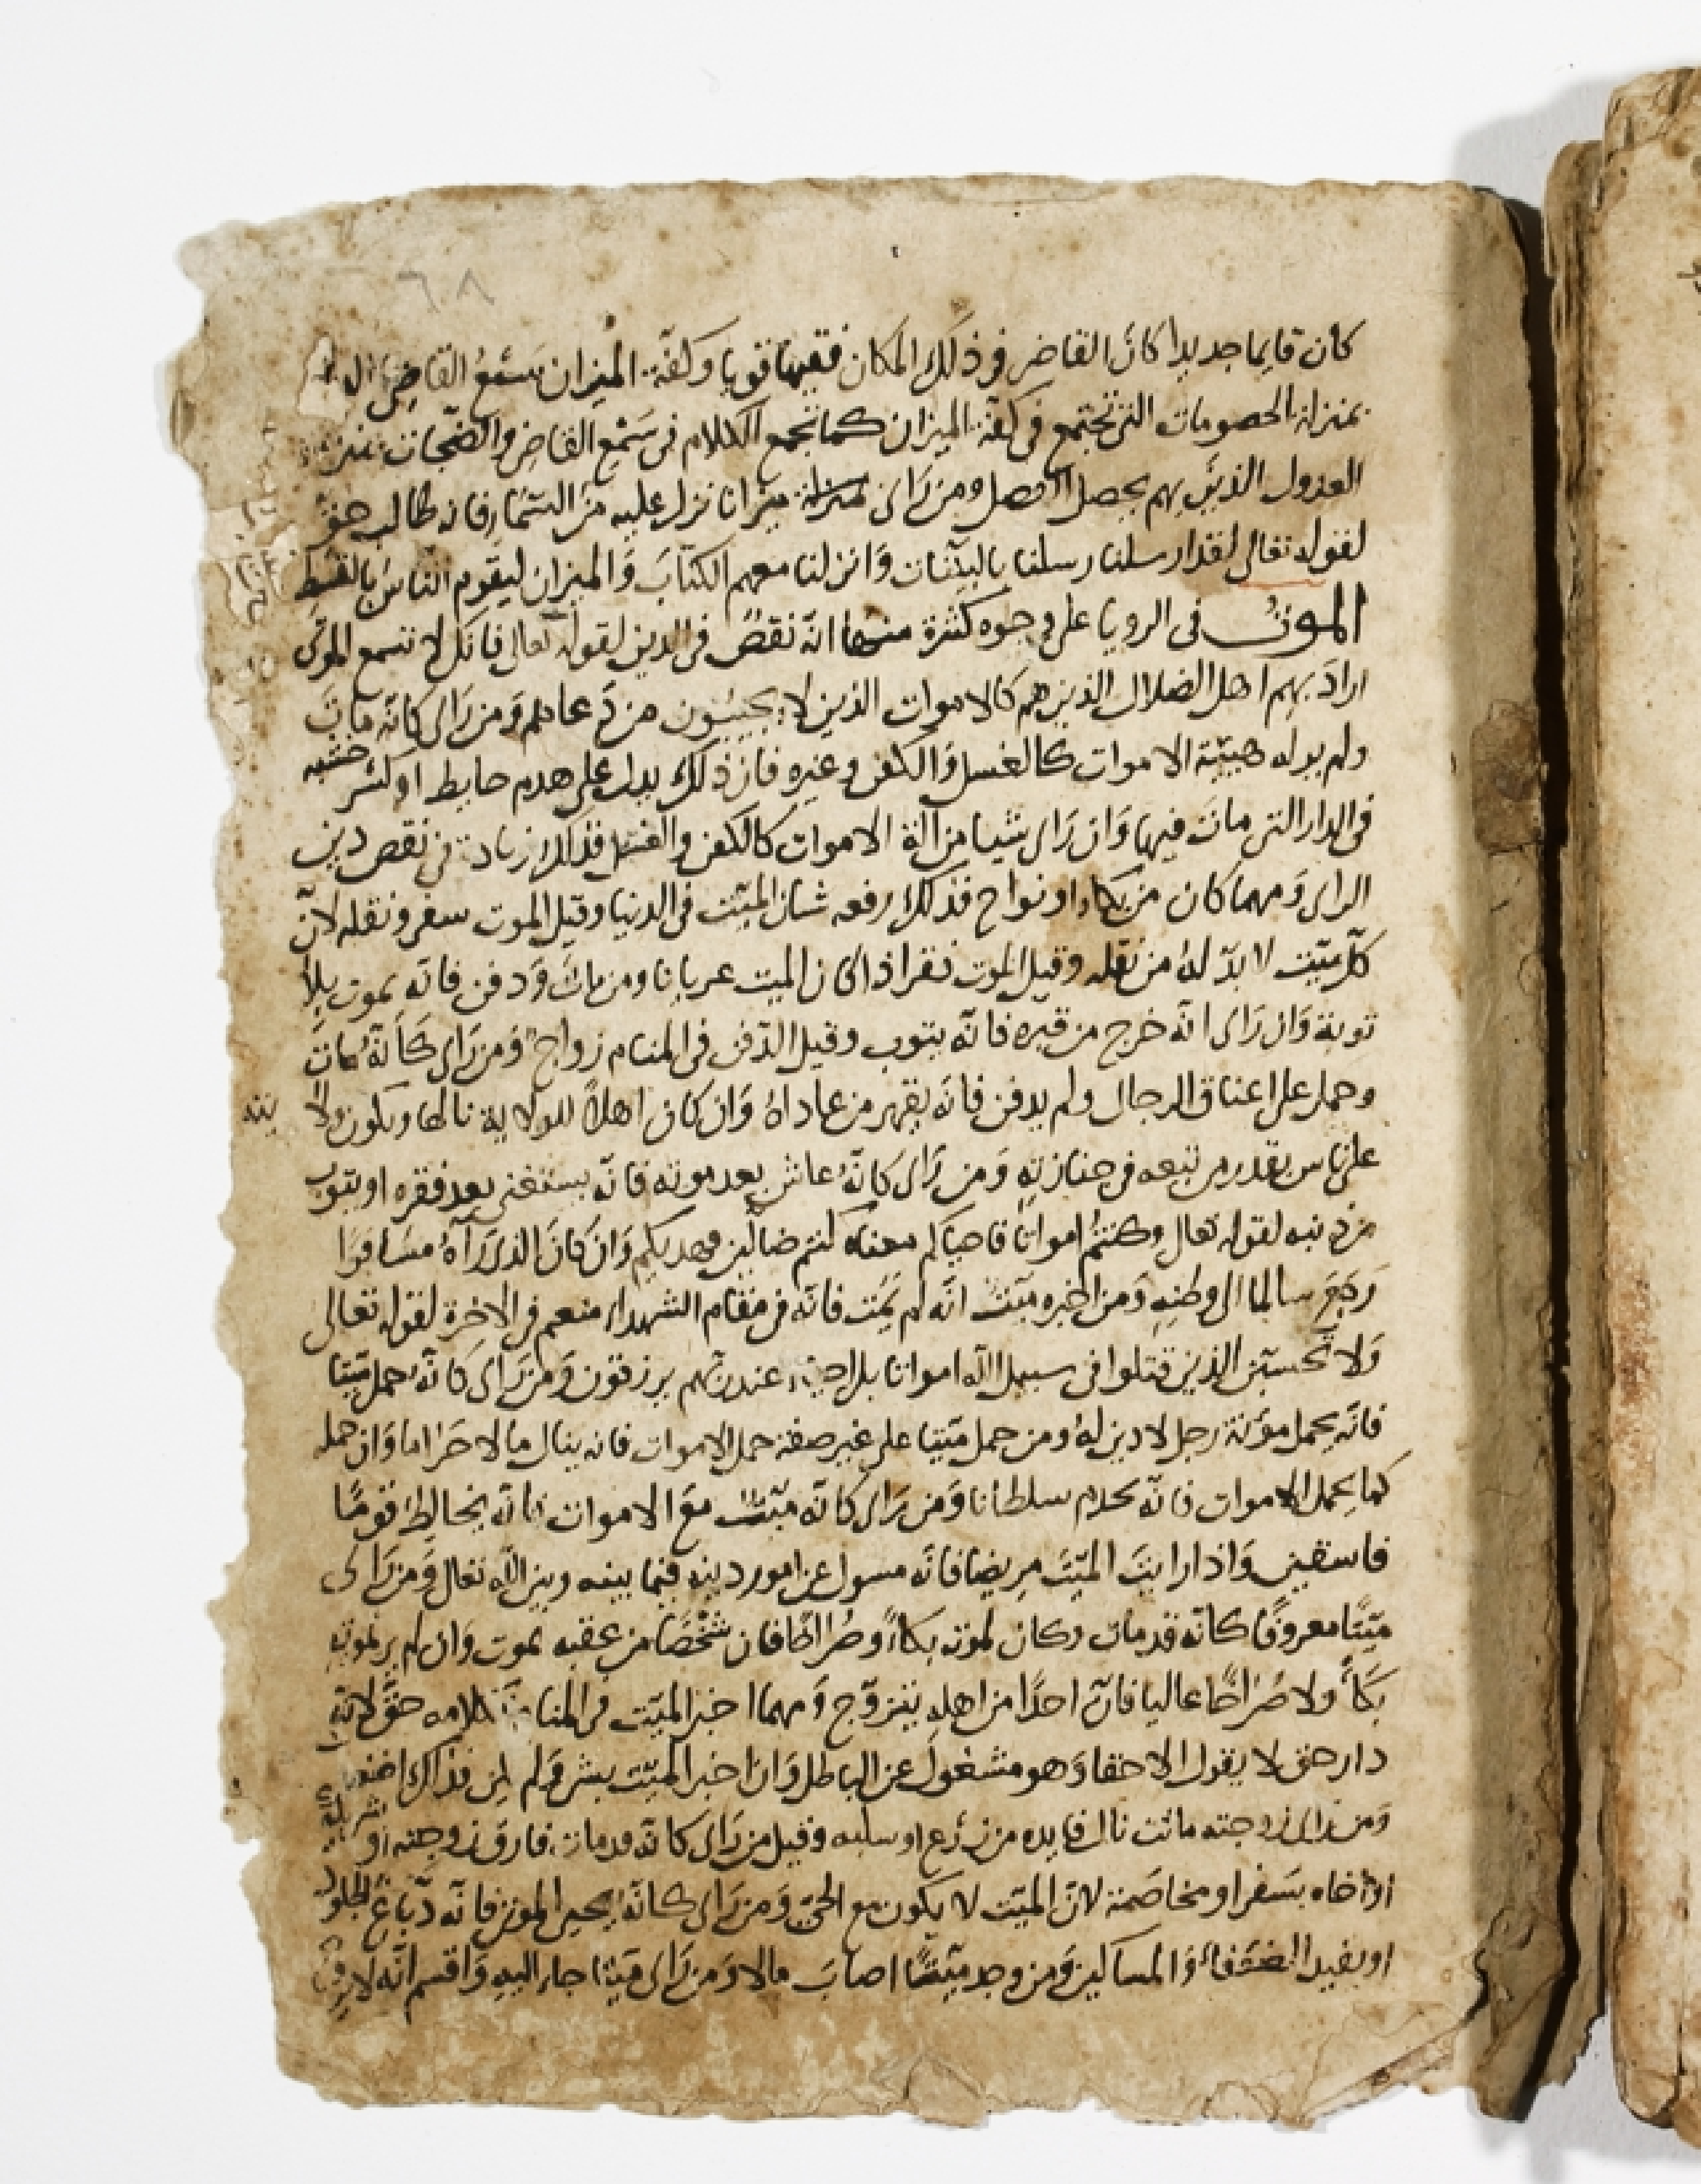 ٦٨
كان قايما جديدا كان القاضي في ذلك المكان فقيها قويا وكفة الميزان سَمْعُ القاضي
بمنزلة الخصومات التي تجتمع في كفة الميزان كما تجمع الكلام في سَمْع القاضي والصّنجات بمنزلة
العدول الذين بهم يحصل الفصل ومن رَاى ميزانا نزل عليه من السّمَا فانه طالب حق
لقوله تعالى لقد ارسلنا رسلنا بالبيّنات وَانزلنا معهم الكتابَ وَالميزان ليقوم النّاسُ بالقسْط
الموتُ في الرويا على وجوه كثيرة منها انّه نقصٌ في الدين لقوله تعالى فانك لا تسمع الموتى
ارادَ بهم اهل الضلال الذين هم كالاموات الذين لا يجيبون من دَعاهم وَمن رَاى كانّه ماتَ
ولم ير له هيئة الاموات كالغسل وَالكفن وغيره فان ذلك يدل على هدم حايط او كسْر خشبه
في الدار التي ماتَ فيها وَان رَاى شيا من آلة الاموات كالكفن والغسل فذلك زيادة في نقص دين
الراى وَمهما كان من بكاء او نواح فذلك رفعه شان الميّت في الدنيا وقيل الموت سفر ونقله لانّ
كلّ ميّت لا بدّ لهُ من نقله وقيل الموت فقر اذا كان الميت عريانا ومن ماتَ وَدفن فانّه يموت بلا
توبة وَان رَاى انّه خرج من قبره فانّه يتوب وقيل الدّفن في المنام زواج وَمن رَاى كَانّهُ ماتَ
وحمل على اعناق الرجال ولم يدفن فانّه يقهر من عاداهُ وَان كان اهلاً للولاية نالها ويكون ولا
يته
على ناس بقدر من تبعه في جنازتهِ وَمن رَاى كَانّهُ عاش بعد موته فانّه يستغنى بعد فقره او يتوب
من ذنبه لقوله تعال وكنتُم امواتًا فاحياكم معناه كنتم ضالّين فهديكم وَان كَانَ الذى رَآهُ مسَافرًا
رَجَعَ سالما الى وطنهِ وَمن اخبره ميّتٌ انّه لم يَمُت فانّه في مقام الشهداء منعم في الاخرة لقوله تعالى
وَلا تحسبَن الذين قتلوا في سبيل الله امواتا بل احياء عند ربّهم يرزقون وَمن رَاى كَانّهُ حمل ميّتا
فانّه يحمل مؤنة رجل لا دين لهُ ومن حمل ميّتا على غير صفة حمل الاموات فانه ينال مالا حَرَاما وَان حمله
كما يحمل الاموات فانّه يخدم سلطانا وَمن رَاى كانّه ميّت مَع الاموات فانّه يخالط قومًا
فاسقين وَاذا رايتَ الميّتَ مريضا فانّه مسول عن امور دينه فيما بينه وبين الله تعال وَمن رَاى
ميّتًا معروفًا كانّه قد مات وكان لموته بكاءً وصُراخًا فان شخْصًا من عقبه يموت وَان لم ير لموتهِ
بكاءً ولا صُرَاخًا عاليا فانّ احدًا من اهلهِ يتزوّج وَمهما اخبر الميّت في المنام فكلامه حقّ لانّه في
دار حق لا يقول الا حقا وَهو مشغول عن الباطل وَان اخبر الميّت بشر وَلم يكن فذلك اضغاث
وَمن راى زوجته ماتت نال فايده من زرْع او سلبه وقيل من رَاى كانّه قد مات فارق زوجته او شريكه
او اخاه بسَفر او مخاصَمة لانّ الميّت لا يكون مع الحيّ وَمن رَاى كانّهُ يحيى الموتى فانّه دَبّاغ الجلود
او يفيد الضعفاء وَالمساكين وَمن وجد ميتًا اصابَ مالا وَمن رَاى ميّتا جاء اليهِ وَاقسم انّه لا